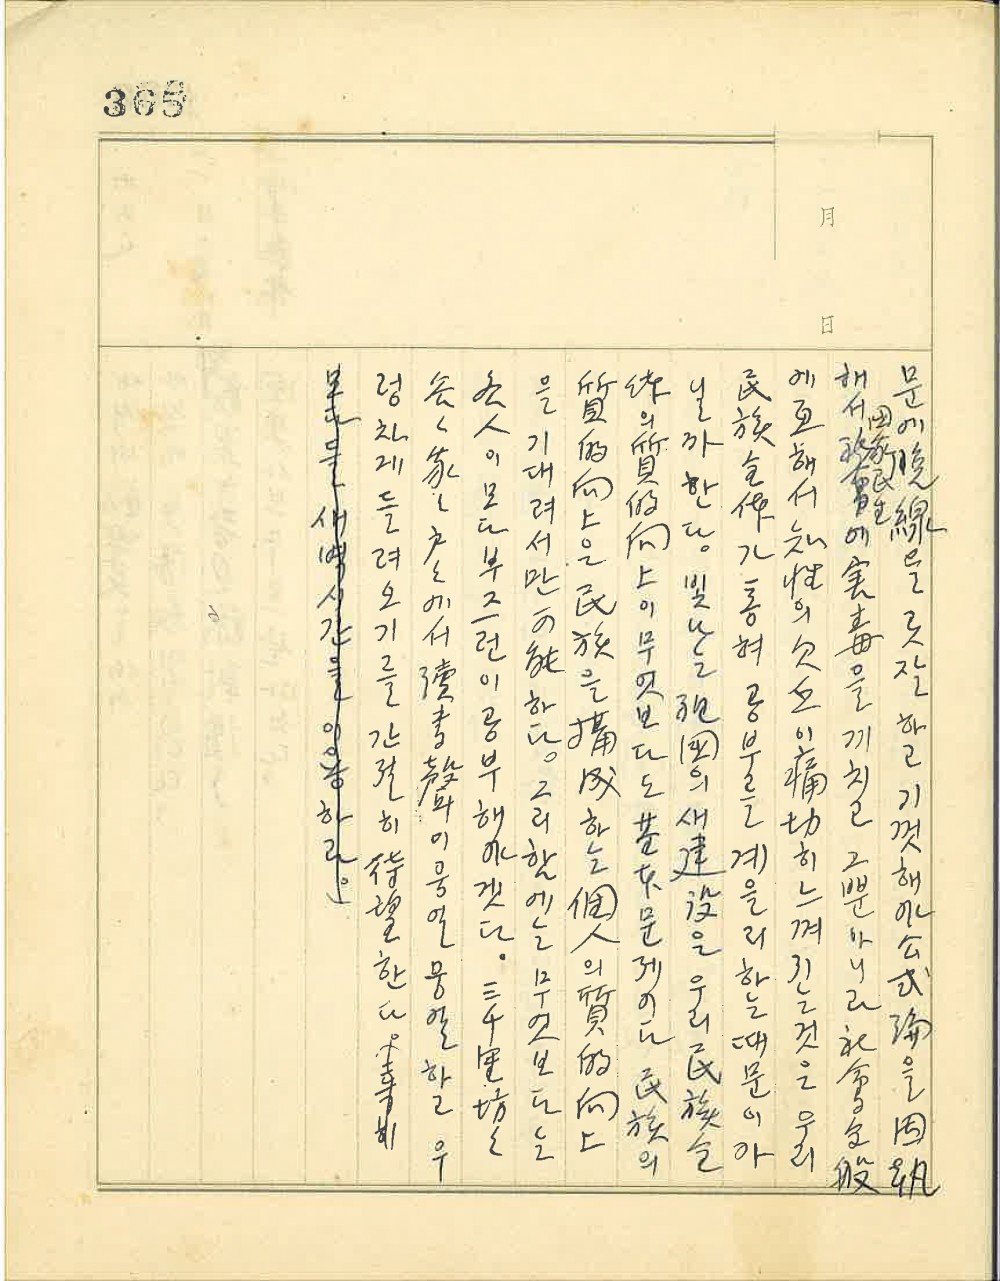 365
月
日
문에 脫線을 곳잘 하고 기껏해야 公式論을 固執
해서 國家民生에 害毒을 끼칠 그뿐 아니라 社會全般
에 亙해서 知性의 欠乏이 痛切히 느껴지는것은 우리
民族全体가 통혀 공부를 게을리 하는때문이 가
닐까 한다。빛나는 祖國의 새 建設은 우리 民族全
体의 質的向上이 무엇보다도 基本문제이다 民族의
質的向上은 民族을 構成하는 個人의 質的向上
을 기대려서만 可能하다。그리함에는 무엇보다는
各人이 모다 부즈런이 공부해야겠다。三千里坊々
谷々 家々戶々에서 讀書聲이 웅얼웅얼 할 우
렁차게 들려오기를 간절히 待望한다。
모다들 새벽시간을 이용하라。